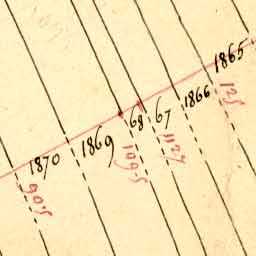 1865
1866
67
68
1869
1870
125
1127
109.5
90.5